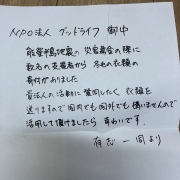 NPO法人 グッドライフ 御中
能登半島地震の災害義合の際に
数名の支援者から 冬もの衣類の
寄付がありました
貴法人の活動に賛同したく 衣類を
送りますので国内でも国外でも構いませんので
活用して頂けましたら 幸いです。
有志 一同より